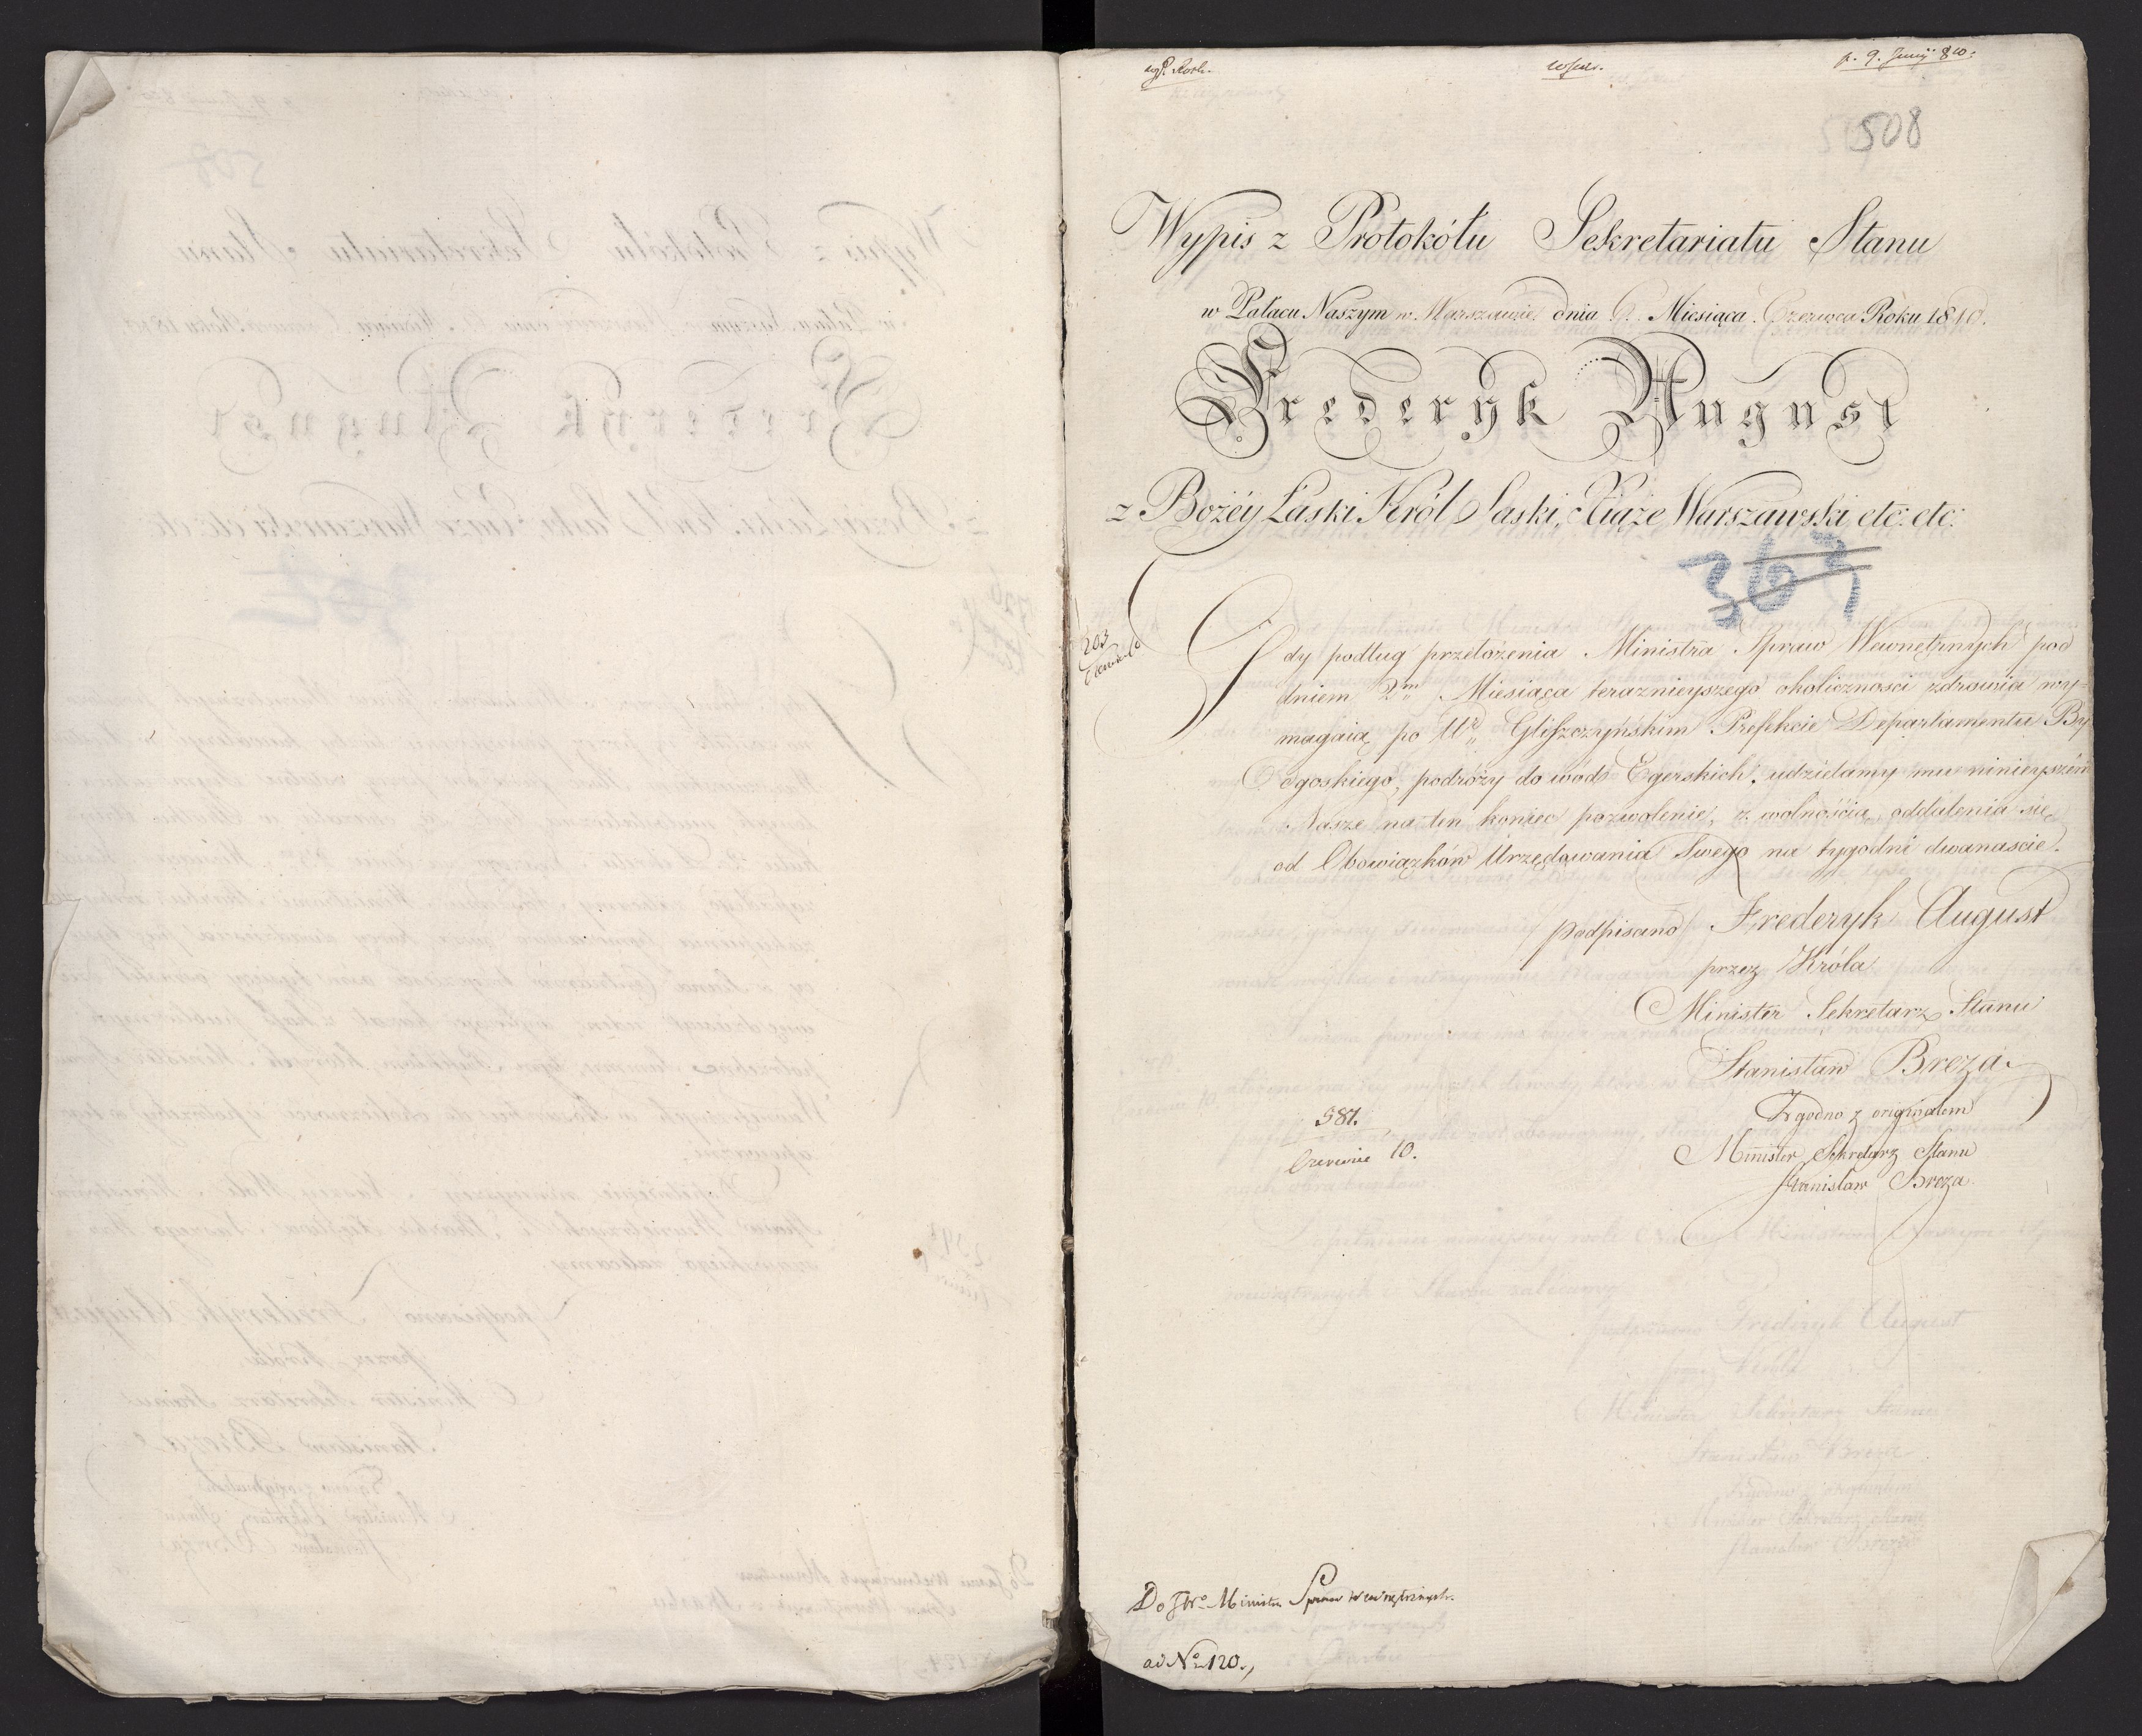 p. 9. Junij 810.
508
Wypis z Protokółu Sekretariatu Stanu
w Pałacu Naszym w Warszawie dnia 6. Miesiąca Czerwca Roku 1810.
Fryderyk August
z Bożéy Łaski Król Saski, Xiąże Warszawski, etc: etc:
363
203
Gdy podług przełożenia Ministra Spraw Wewnętrznych pod
dniem 2m Miesiąca teraznieyszego okoliczności zdrowia wy-
magaią po Ur. Gliszczyńskim Prefekcie Departamentu By
dgoskiego, podróży do wód Egerskich, udzielamy mu ninieyszém
Nasze na ten koniec pozwolenie, z wolnością oddalenia się
od Obowiązków Urzędowania Swego na tygodni dwanaście.
/podpisano/ Frederyk August
przez Króla
Minister Sekretarz Stanu
Stanisław Breza
Zgodno z originałem
Minister Sekretarz Stanu
Stanisław Breza
587.
Czerwiec 10.
Do JWo Ministra Spraw Wewnętrznych.
ad No 120.,